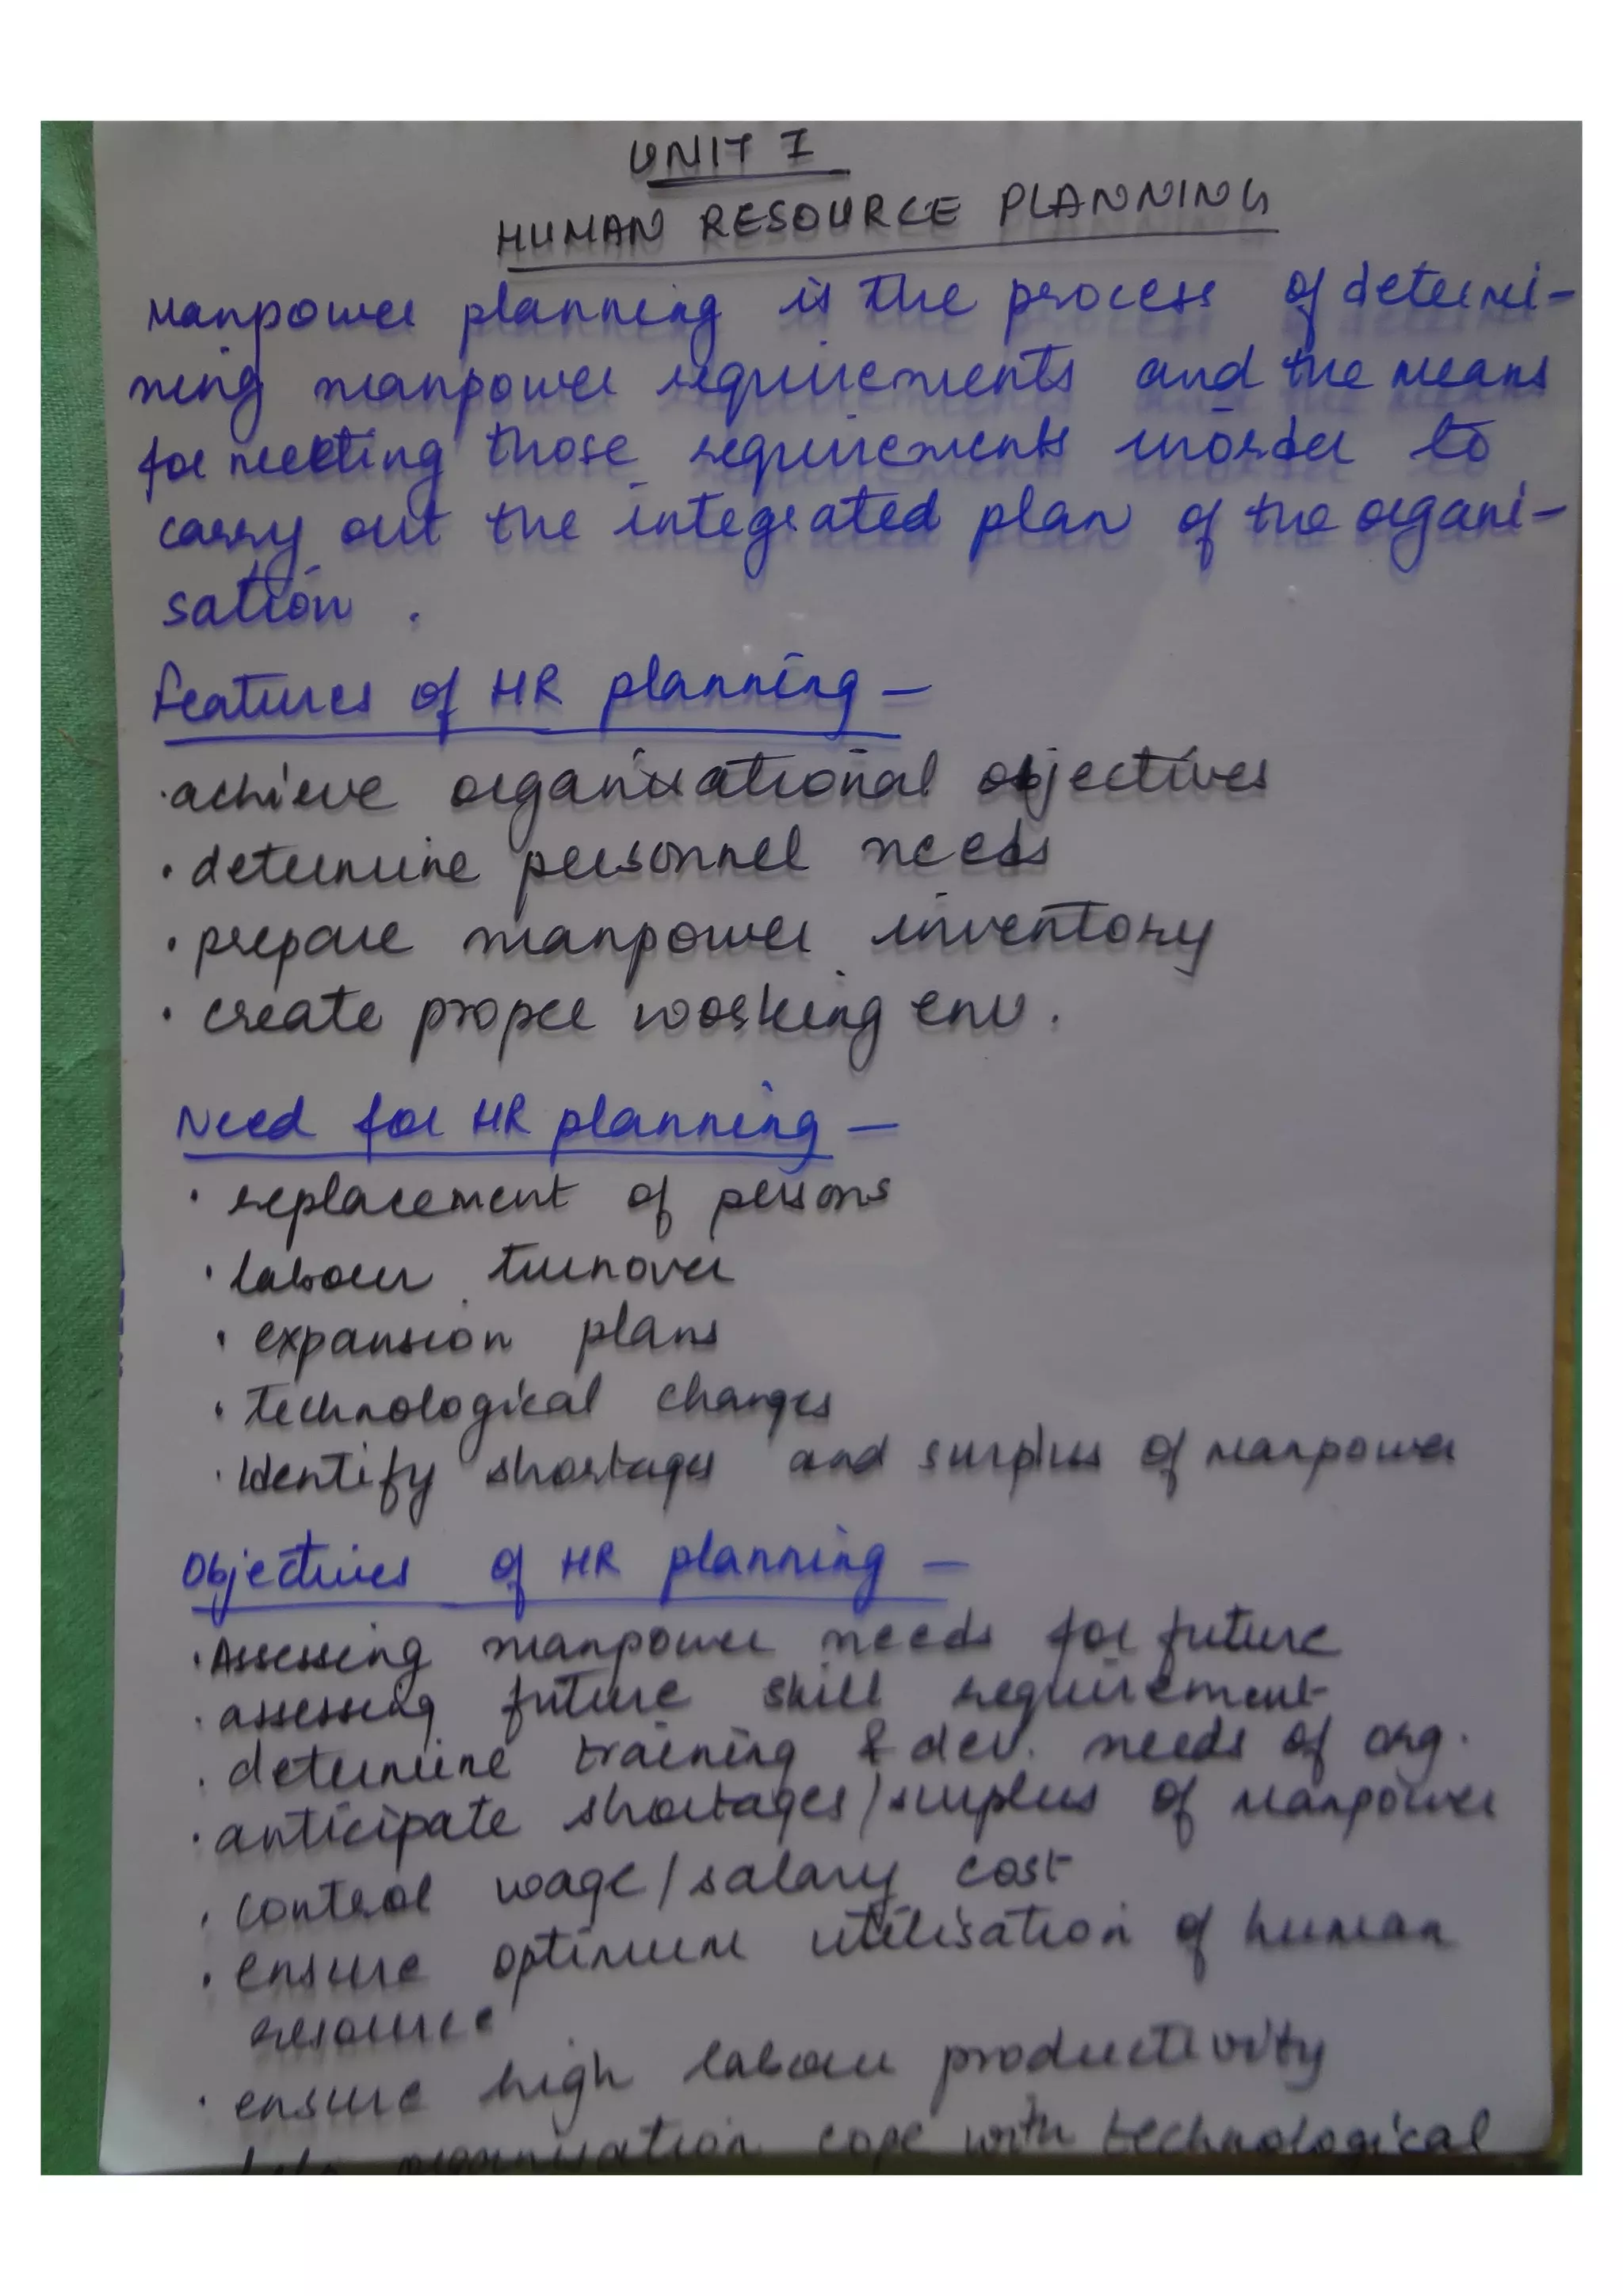 UNIT I
HUMAN RESOURCE PLANNING
Manpower planning is the process of determi-
ning manpower requirements and the means
for meeting those requirements inorder to
carry out the integrated plan of the organi-
sation.
Features of HR planning –
· achieve organisational objectives
· determine personnel needs
· prepare manpower inventory
· create proper working env.
Need for HR planning –
· replacement of persons
· labour turnover
· expansion plans
· technological changes
· Identify shortages and surplus of manpower
Objectives of HR planning –
· Assessing manpower needs for future
· assessing future skill requirement
· determine training & dev. needs of org.
· anticipate shortages/surplus of manpower
· control wage/salary cost
· ensure optimum utilisation of human
resource
· ensure high labour productivity
help organisation cope with technological